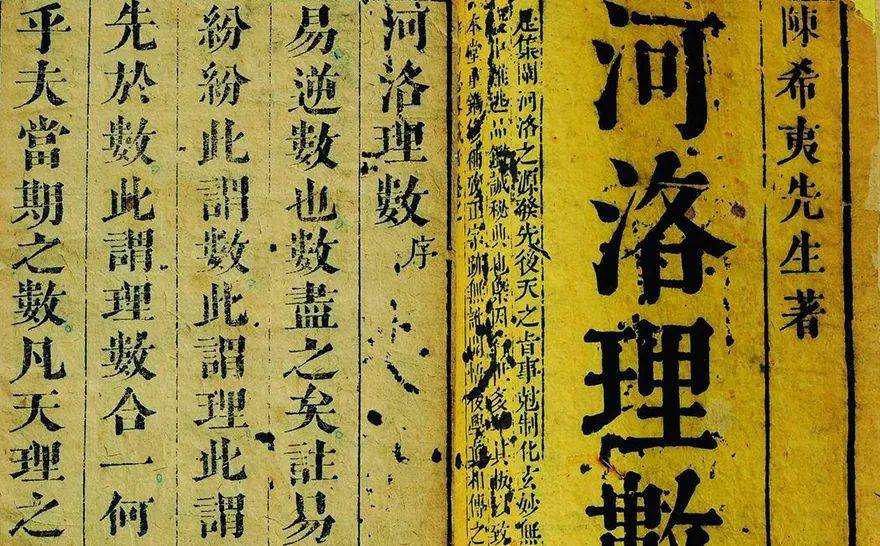 陳希夷先生著
河洛理數
是集闡河洛之源發先後天之旨事剋制化玄妙無
誠秘典也
河洛理數序
易逆數也數盡之矣註易
紛紛此謂數此謂理此謂
先於數此謂理數合一何
乎夫當期之數凡天理之